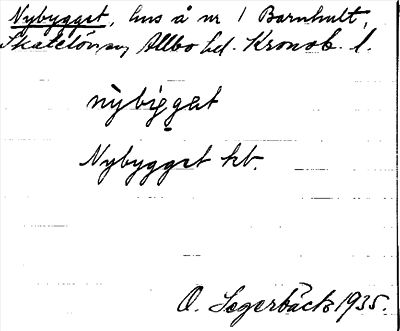 Nybygget, hus å nr 1 Barnhult,
Skatelöv sn, Allbo hd. Kronob. l.
nỳbig̣get
Nybygget kt.
O. Segerbäck 1935.